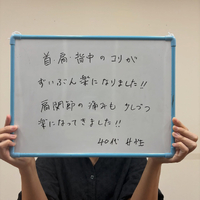 首肩背中のコリが
ずいぶん楽になりました!!
肩関節の痛みも少しづつ
楽になってきました!!
40代 女性